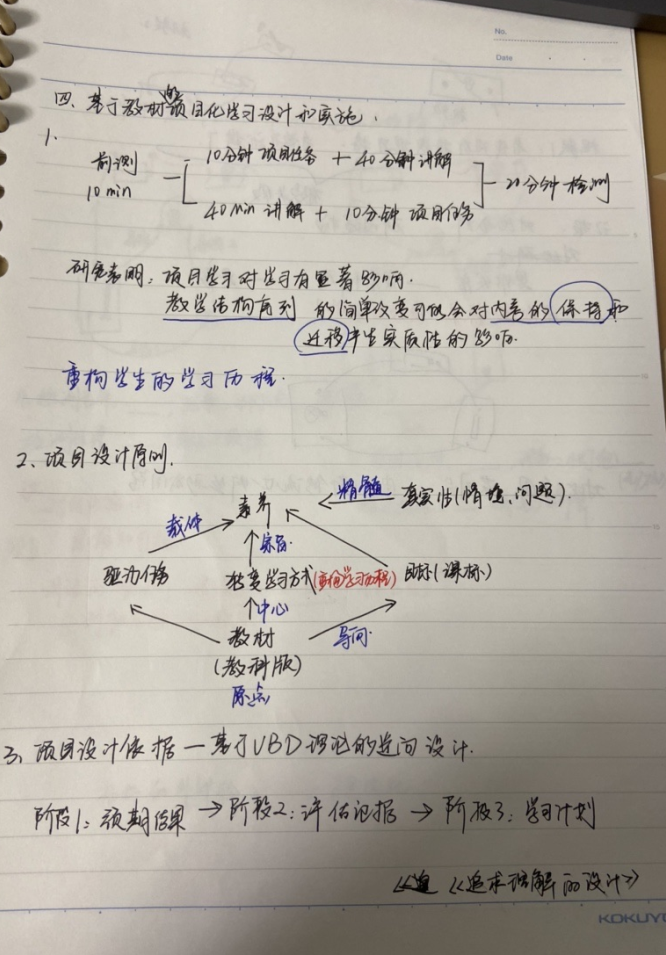 No.
Date
四、基于教材的项目化学习设计和实施.
1.
10分钟 项目任务 + 40分钟讲解
前测
10 min
20分钟检测
40min 讲解 + 10分钟 项目任务
研究表明：项目学习对学习有显著影响.
教学结构序列 的简单改变可能会对内容的保持和
迁移产生实质性的影响.
重构学生的学习历程.
2、项目设计原则.
素养 精髓 真实性(情境、问题).
载体 宗旨
驱动任务 转变学习方式(重构学习历程) 目标(课标)
中心
教材 导向
(教科版)
原点
3、项目设计依据—基于UBD理论的逆向设计.
阶段1：预期结果 → 阶段2：评估证据 → 阶段3：学习计划
《追求理解的设计》
KOKUYO